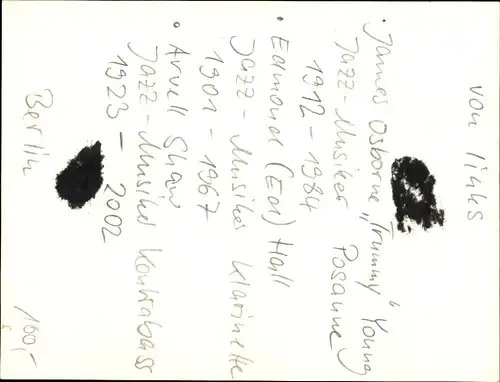 von links
• James Osborne „Trummy“ Young
Jazz-Musiker Posaune
1912 - 1984
• Edmond (Ed) Hall
Jazz - Musiker Klarinette
1901 - 1967
• Arvell Shaw
Jazz - Musiker Kontrabass
1923 - 2002
Berlin
100,-